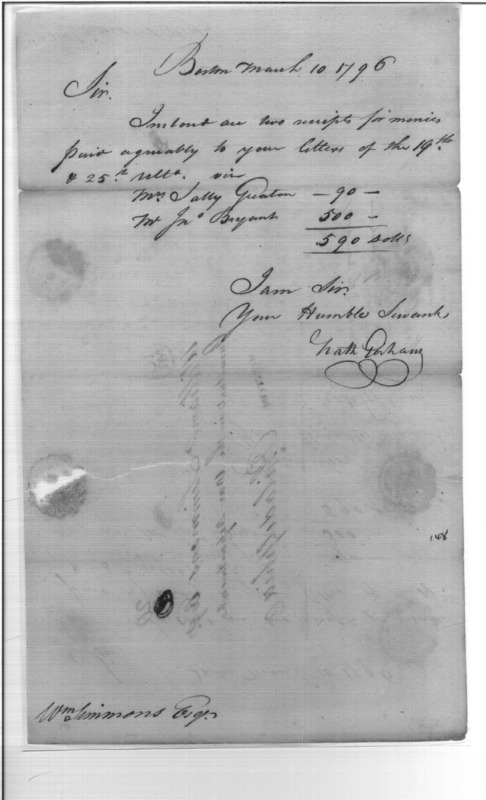 Boston March 10 1796
Sir.
Inclosed are two receipts for monies
paid agreeably to your letters of the 19th
& 25th ulto. viz
Mrs Sally Greaton — 90 —
Mr Jno Bryant 500 —
590 dolls
I am Sir.
Your Humble Servant
Nath Gorham
Wm Simmons Esqr